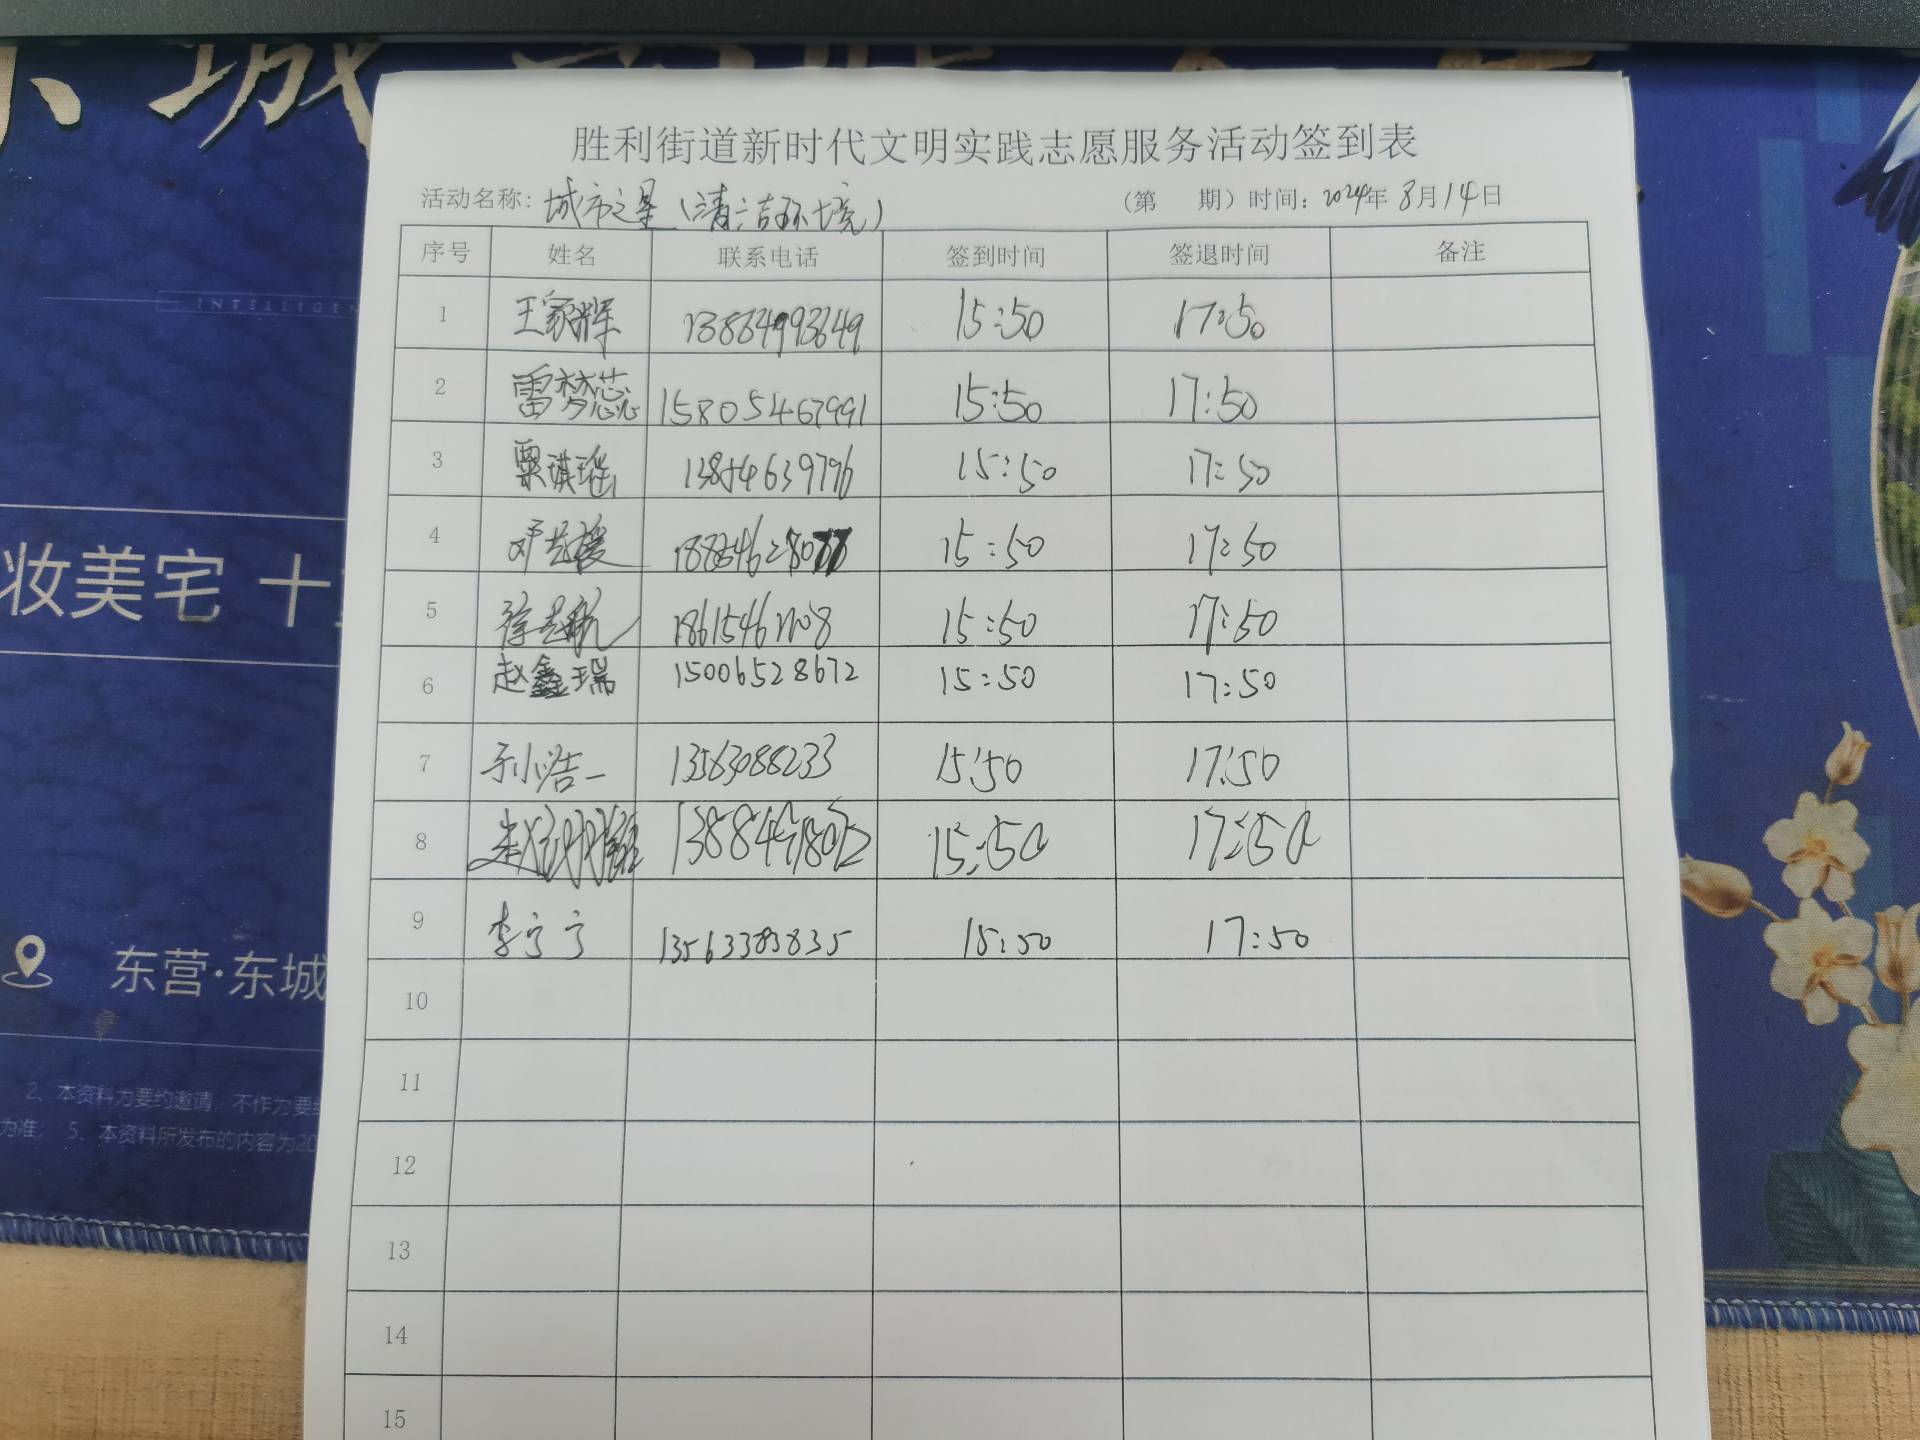 城
INTELLIGEN
妆美宅 十
东营·东城
2、本资料为要约邀请,不作为要约
为准; 5、本资料所发布的内容为20
胜利街道新时代文明实践志愿服务活动签到表
活动名称: 城市之星(清洁环境) (第 期)时间: 2024年 8月14日
序号 姓名 联系电话 签到时间 签退时间 备注
1 王家辉 15:50 17:50
2 雷梦蕊 15805467991 15:50 17:50
3 栗琪瑶 13854639796 15:50 17:50
4 15:50 17:50
5 15:50 17:50
6 赵鑫瑞 15006528672 15:50 17:50
7 13563088233 15:50 17:50
8 15:50 17:50
9 李宁宁 13563383835 15:50 17:50
10
11
12
13
14
15